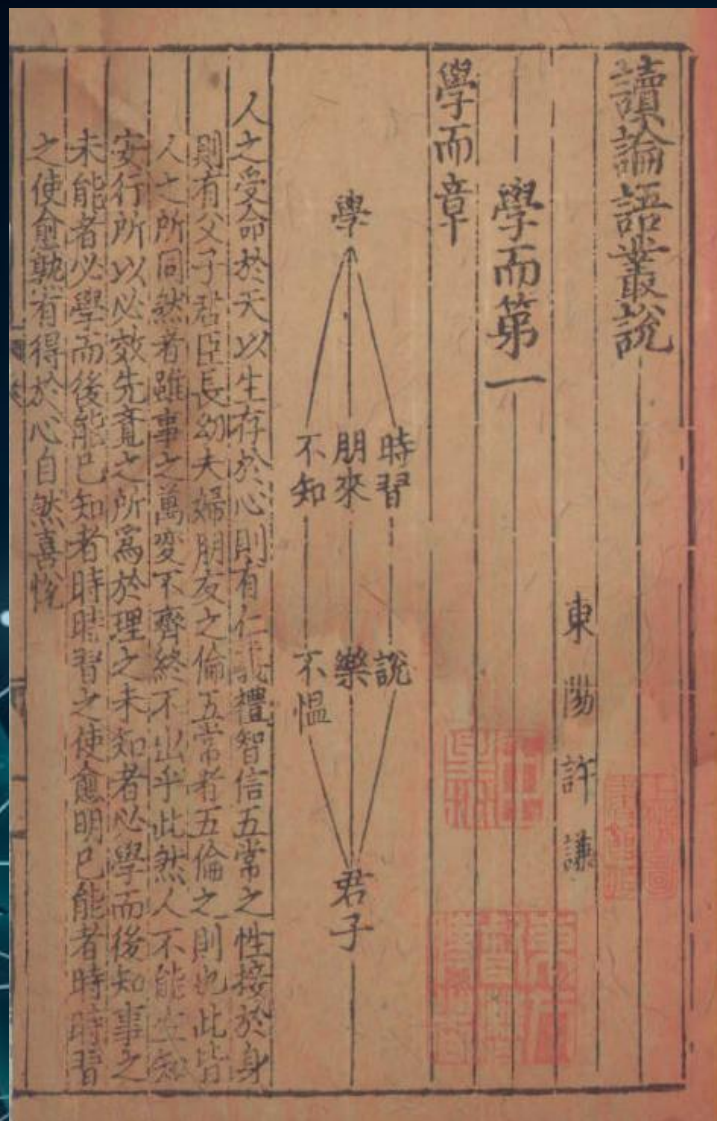 讀論語叢說
東陽許謙
學而第一
學而章
學
時習
說
朋來
樂
不知
不慍
君子
人之受命於天以生存於心則有仁義禮智信五常之性接於身
則有父子君臣長幼夫婦朋友之倫五常者五倫之則也此皆
人之所同然者雖事之萬變不齊終不出乎此然人不能生知
安行所以必效先覺之所爲於理之未知者必學而後知事之
未能者必學而後能已知者時時習之使愈明已能者時時習
之使愈熟有得於心自然喜悅